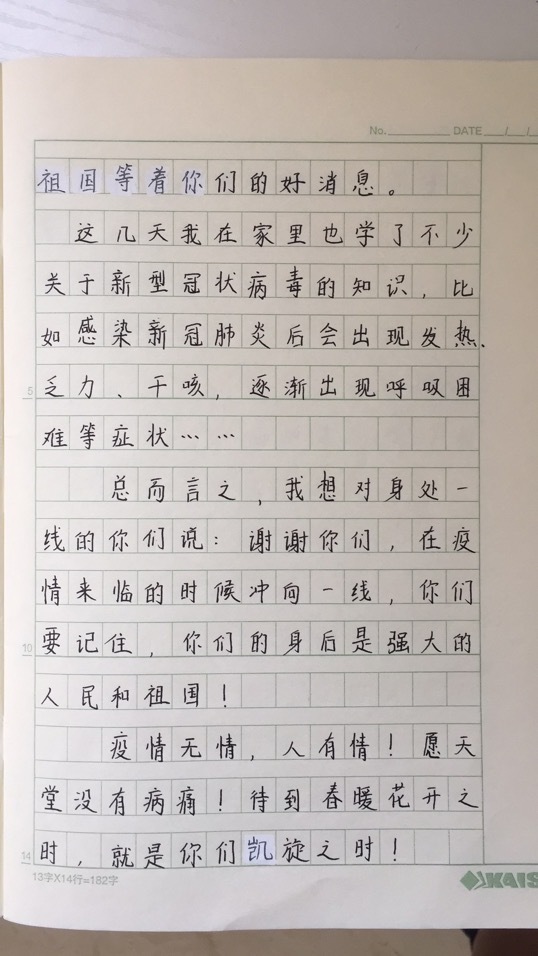 No. DATE / /
祖国等着你们的好消息。
这几天我在家里也学了不少
关于新型冠状病毒的知识，比
如感染新冠肺炎后会出现发热、
5 乏力、干咳，逐渐出现呼吸困
难等症状……
总而言之，我想对身处一
线的你们说：谢谢你们，在疫
情来临的时候冲向一线，你们
10 要记住，你们的身后是强大的
人民和祖国！
疫情无情，人有情！愿天
堂没有病痛！待到春暖花开之
14 时，就是你们凯旋之时！
13字X14行=182字